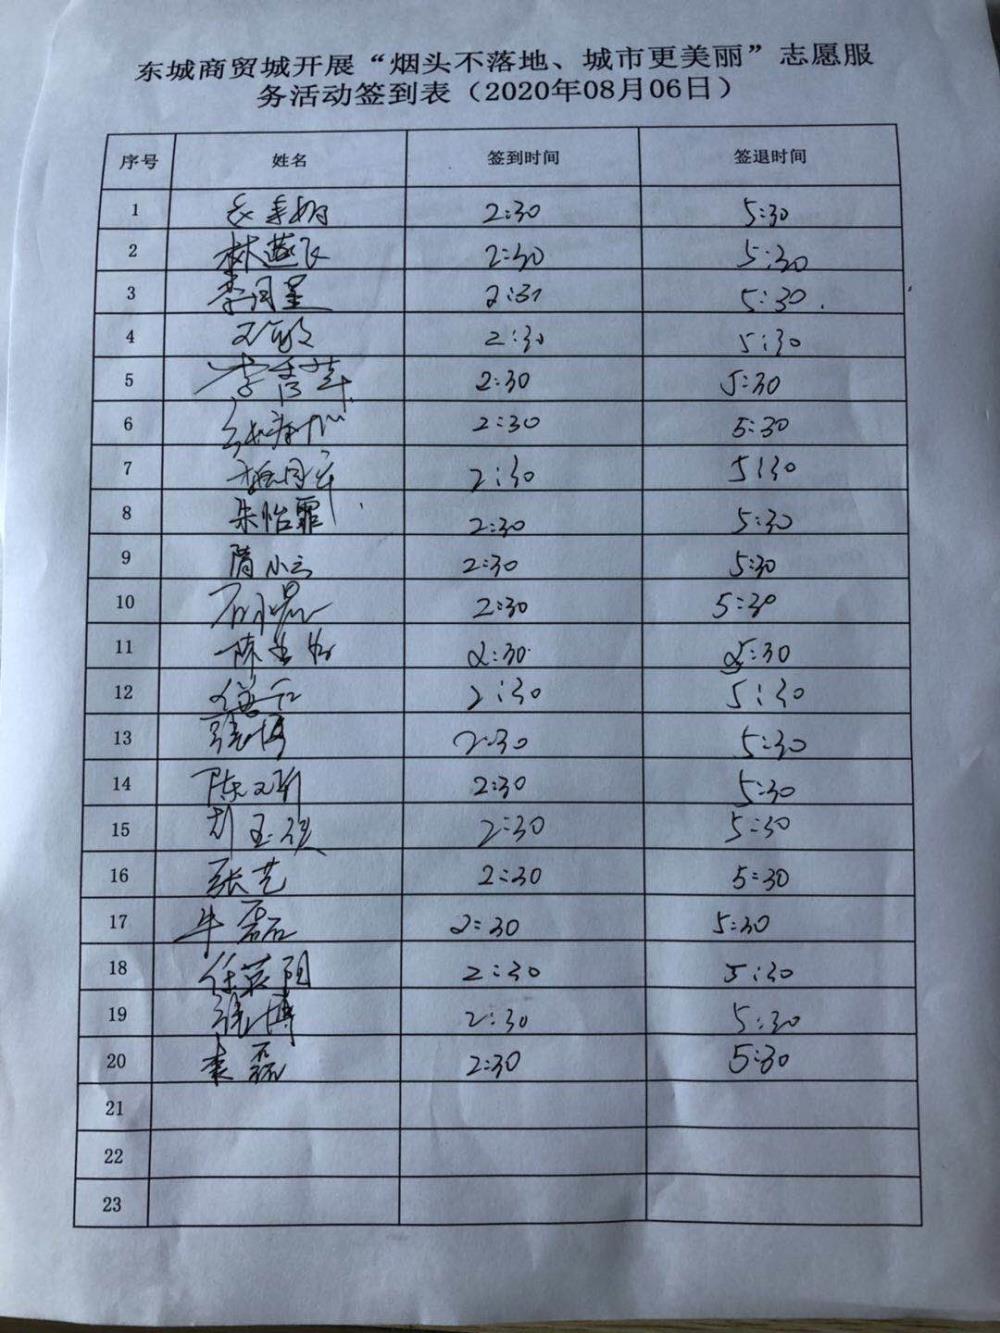 东城商贸城开展“烟头不落地、城市更美丽”志愿服
务活动签到表（2020年08月06日）
序号 姓名 签到时间 签退时间
1 2:30 5:30
2 林燕飞 2:30 5:30
3 李同星 2:31 5:30.
4 2:30 5:30
5 李秀萍 2:30 5:30
6 2:30 5:30
7 2:30 5:30
8 朱怡霏 2:30 5:30
9 隋小云 2:30 5:30
10 2:30 5:30
11 陈 2:30 5:30
12 2:30 5:30
13 2:30 5:30
14 陈文 2:30 5:30
15 刘玉 2:30 5:30
16 张艺 2:30 5:30
17 牛磊 2:30 5:30
18 徐英阳 2:30 5:30
19 博 2:30 5:30
20 李磊 2:30 5:30
21
22
23